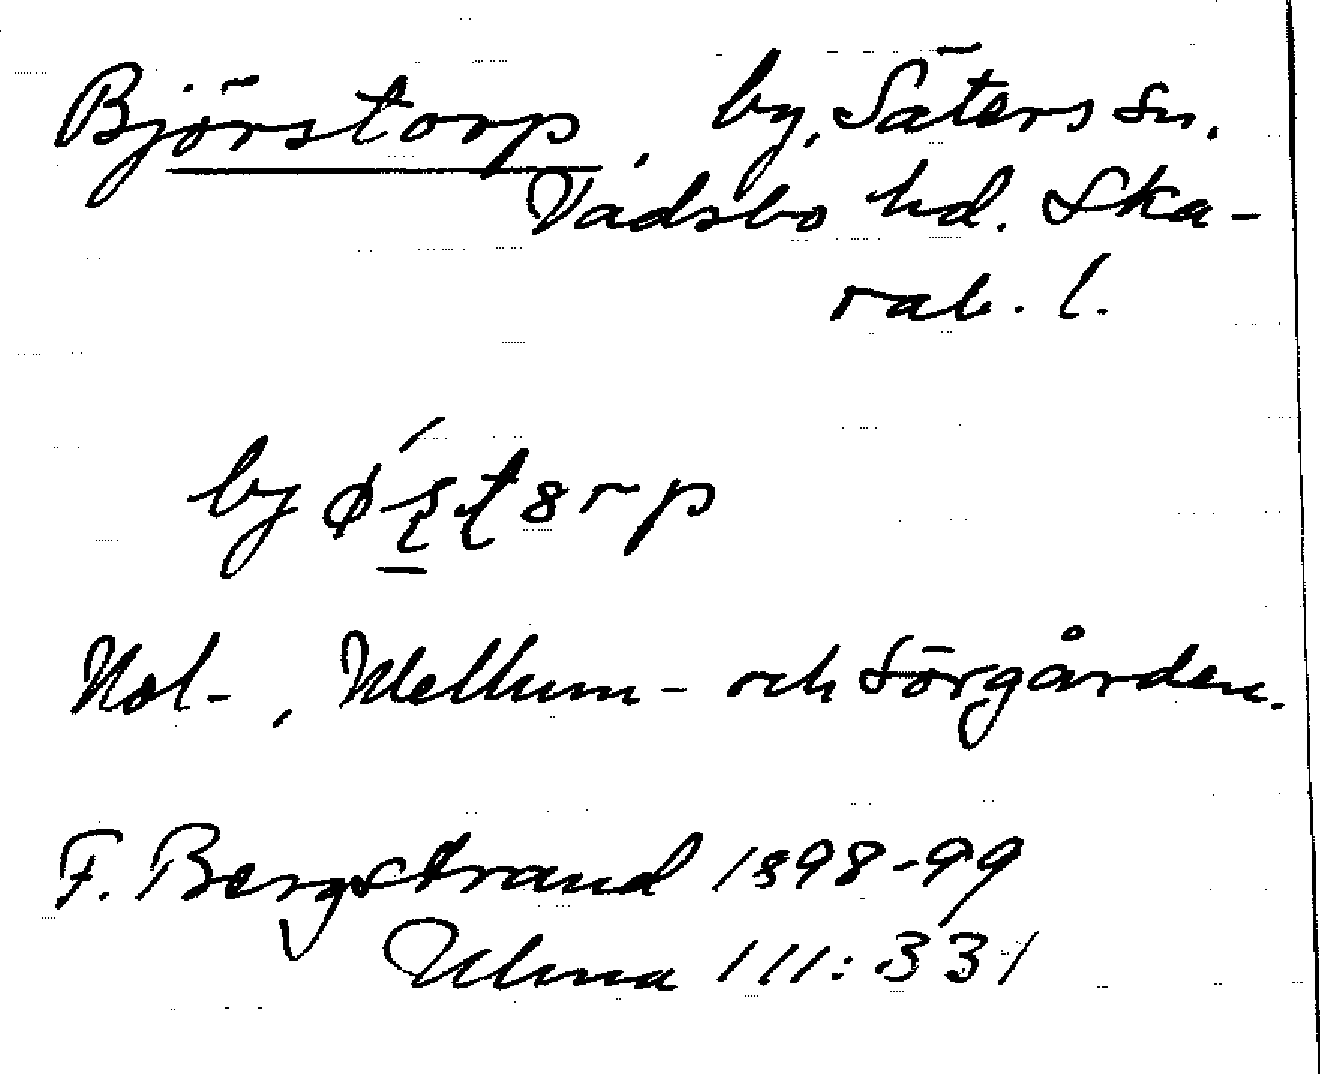 Björstorp, by, Säters sn.
Vadsbo hd. Ska-
rab. l.
Nol-, Mellum- och Sörgården.
F. Bergstrand 1898-99
Ulma 111:331